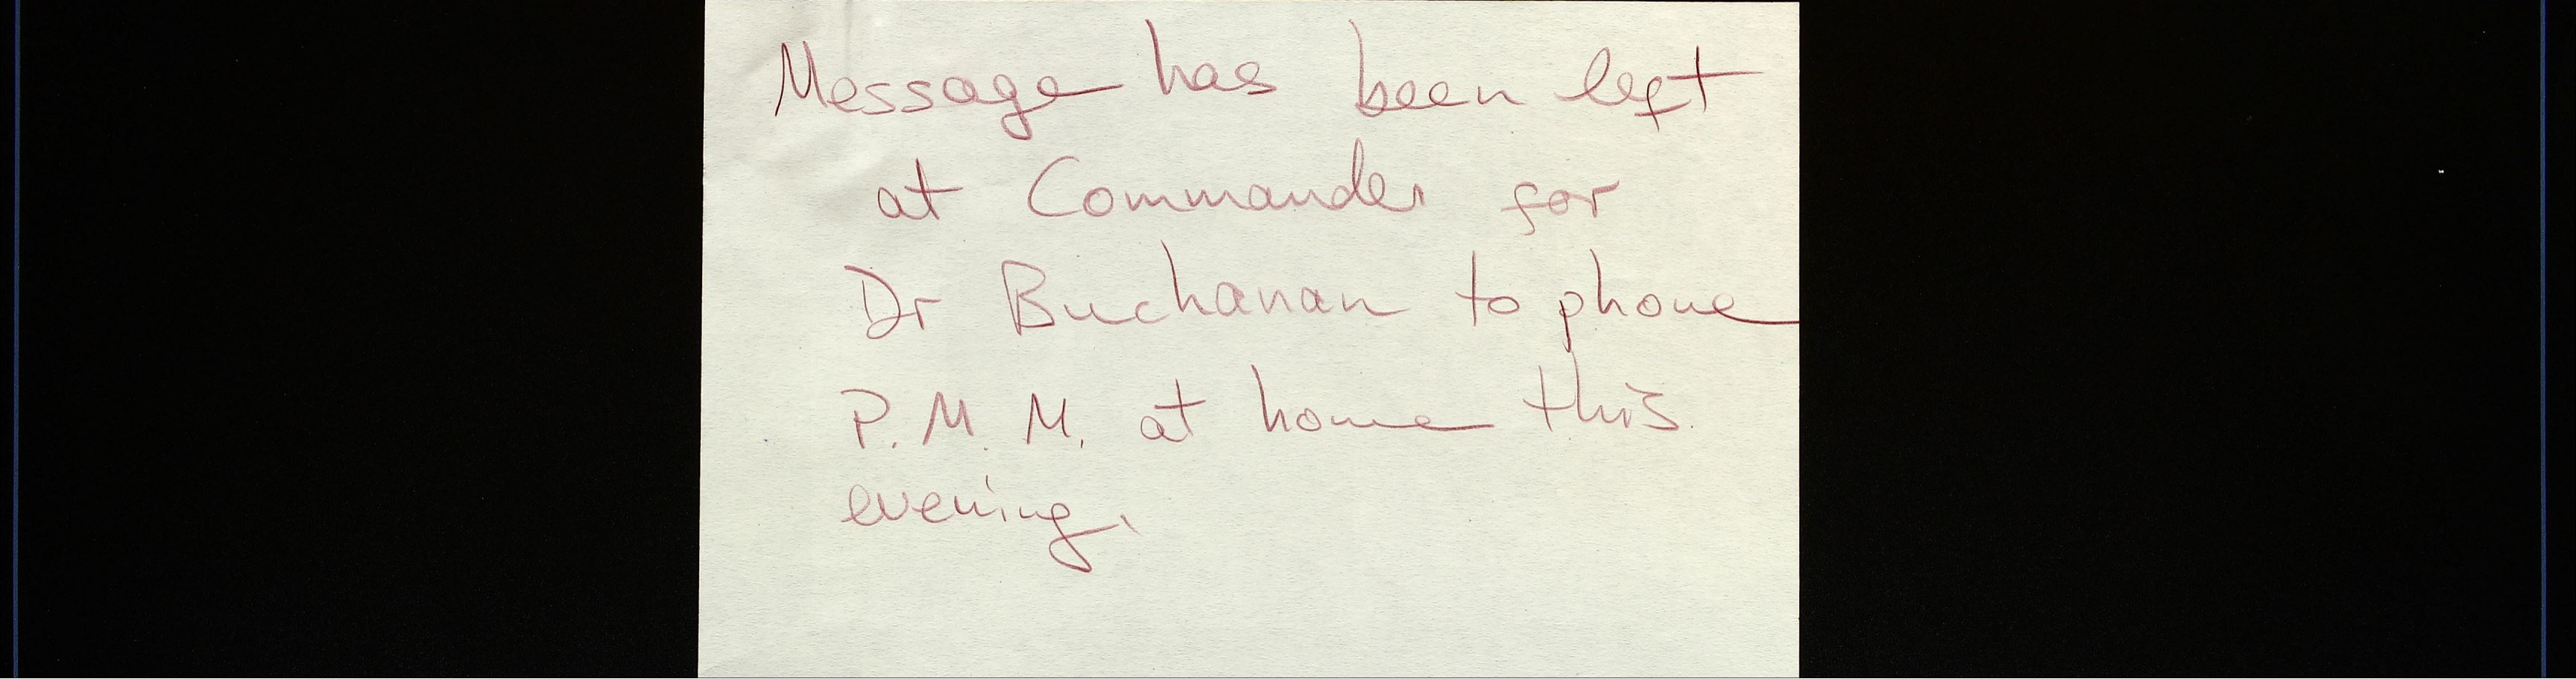 Message has been left
at Commander for
Dr Buchanan to phone
P. M. M. at home this
evening.